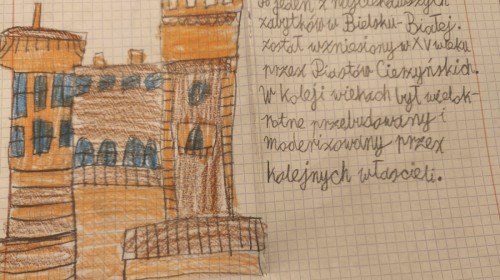 to jeden z najciekawszych
zabytków w Bielsku-Białej.
został wzniesiony w XV wieku
przez Piastów Cieszyńskich.
W koleji wiekach był wielok-
rotne przebudowany i
modernizowany przez
kolejnych właścieli.